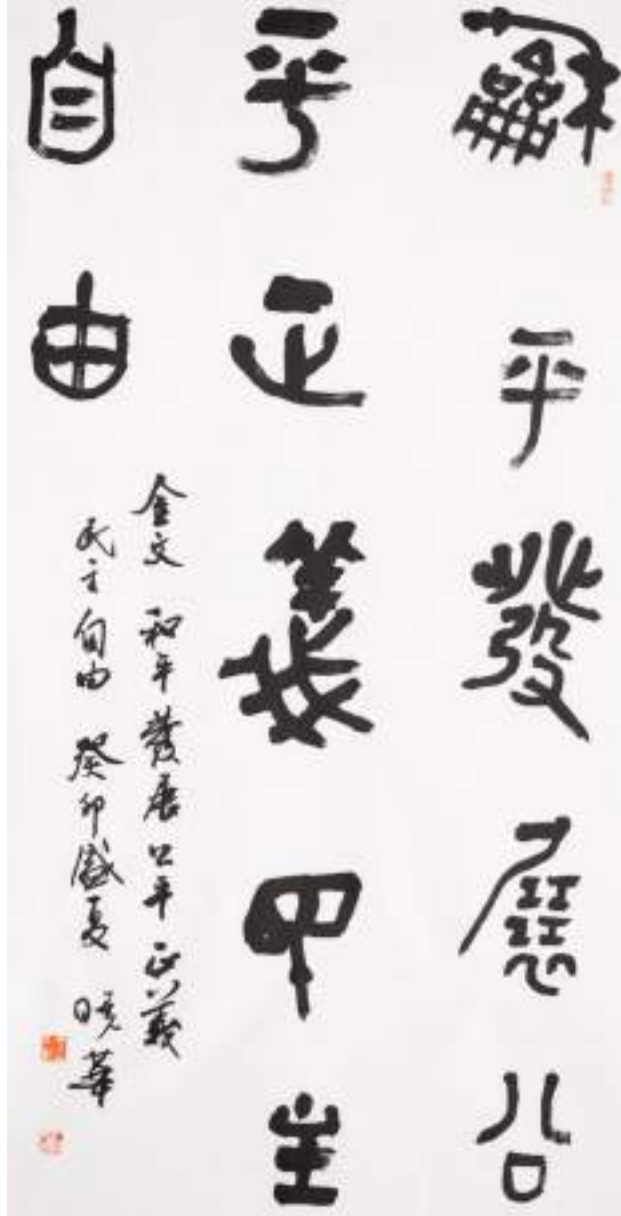 龢平發展公
平正義民主
自由
金文 和平發展公平正義
民主自由 癸卯盛夏 曉華